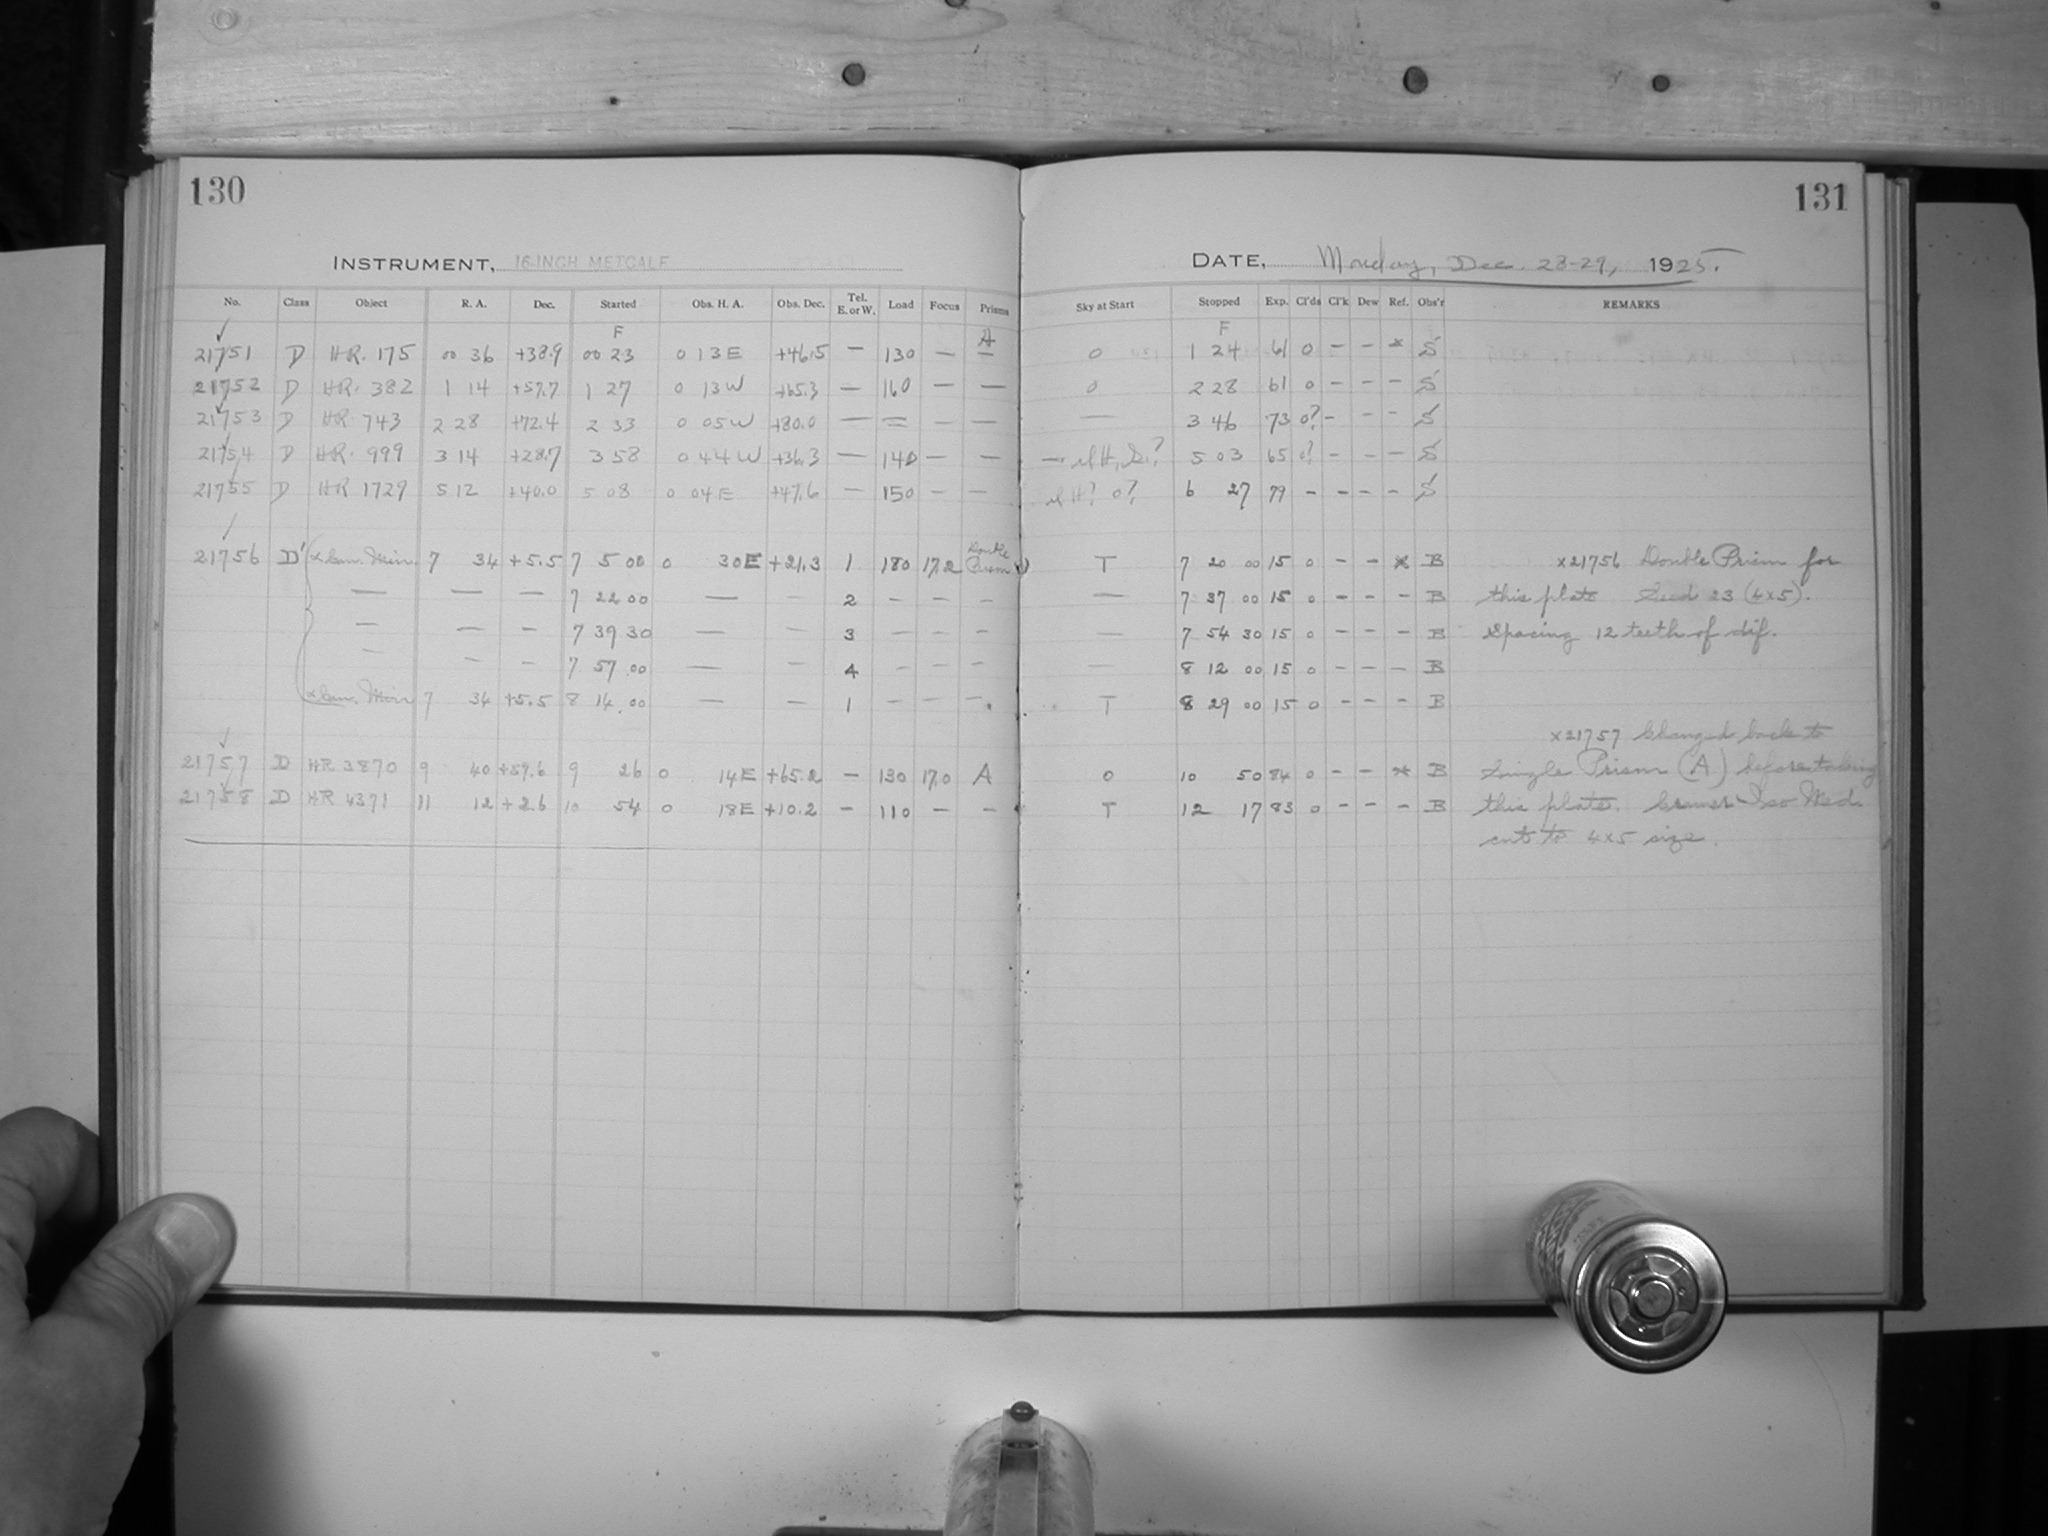 130
131
INSTRUMENT, 16-INCH METCALF
DATE, Monday, Dec. 28-29, 1925.
No. Class Object R. A. Dec. Started Obs. H. A. Obs. Dec. Tel. E. or W. Load Focus Prisms Sky at Start Stopped Exp. Cl'ds Cl'k Dew Ref. Obs'r REMARKS
F A F
21751 D HR. 175 00 36 +38.9 00 23 0 13 E +46.5 — 130 — — 0 1 24 61 0 - - x S
21752 D HR. 382 1 14 +57.7 1 27 0 13 W +65.3 — 160 — — 0 2 28 61 0 - - - S
21753 D HR 743 2 28 +72.4 2 33 0 05 W +80.0 — = — — — 3 46 73 0? - - - S
21754 D HR. 999 3 14 +28.7 3 58 0 44 W +36.3 — 140 — — 5 03 65 0? - - - S
21755 D HR 1729 5 12 +40.0 5 08 0 04 E +47.6 — 150 — — H? 0? 6 27 79 - - - - S
21756 D' α Can. Min. 7 34 +5.5 7 5 00 0 30 E +21.3 1 180 17.2 Double Prism T 7 20 00 15 0 - - x B x21756 Double Prism for
— — — 7 22 00 — — 2 - - - — 7 37 00 15 0 - - - B this plate Seed 23 (4x5).
— — — 7 39 30 — — 3 - - - — 7 54 30 15 0 - - - B Spacing 12 teeth of dif.
— — — 7 57 00 — — 4 - - - — 8 12 00 15 0 - - - B
α Can. Min 7 34 +5.5 8 14 00 — — 1 - - - T 8 29 00 15 0 - - - B
x21757 Changed back to
21757 D HR 3870 9 40 +57.6 9 26 0 14 E +65.2 — 130 17.0 A 0 10 50 84 0 - - x B Single Prism (A) before taking
21758 D HR 4371 11 12 +2.6 10 54 0 18 E +10.2 — 110 — — T 12 17 83 0 - - - B this plate. Cramer Iso Med.
cut to 4x5 size.